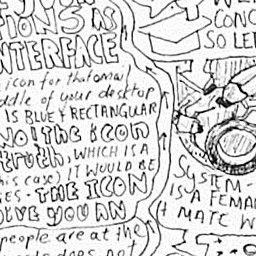 TIONS AS
INTERFACE
icon for that email
ddle of your desktop
IS BLUE & RECTANGULAR
NO! the icon
truth, WHICH IS A
his case) IT WOULD BE
GES - THE ICON
GIVE YOU AN
people are at the
does not
CONC
SO LE
SYSTEM -
IS A FEMA
MATE W